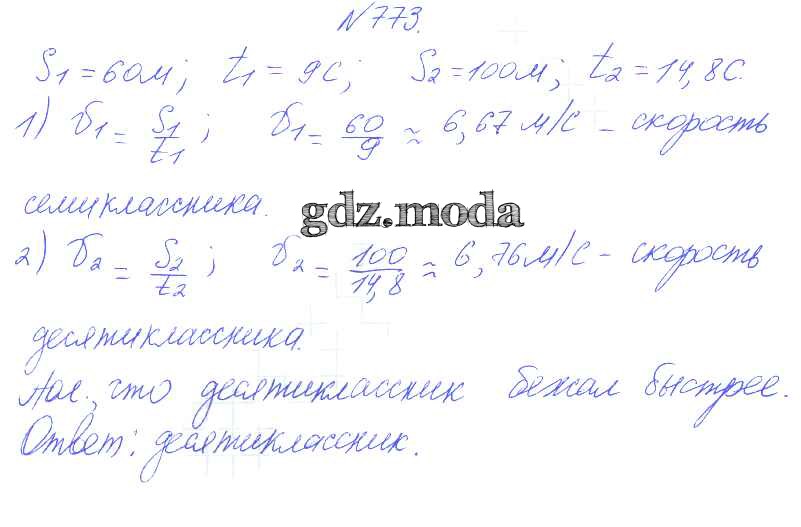 №773.
S1 = 60м; t1 = 9с; S2 = 100м; t2 = 14,8с.
1) υ1 = S1/t1; υ1 = 60/9 ≈ 6,67 м/с – скорость
семиклассника.
gdz.moda
2) υ2 = S2/t2; υ2 = 100/14,8 ≈ 6,76 м/с – скорость
десятиклассника.
что десятиклассник бежал быстрее.
Ответ: десятиклассник.